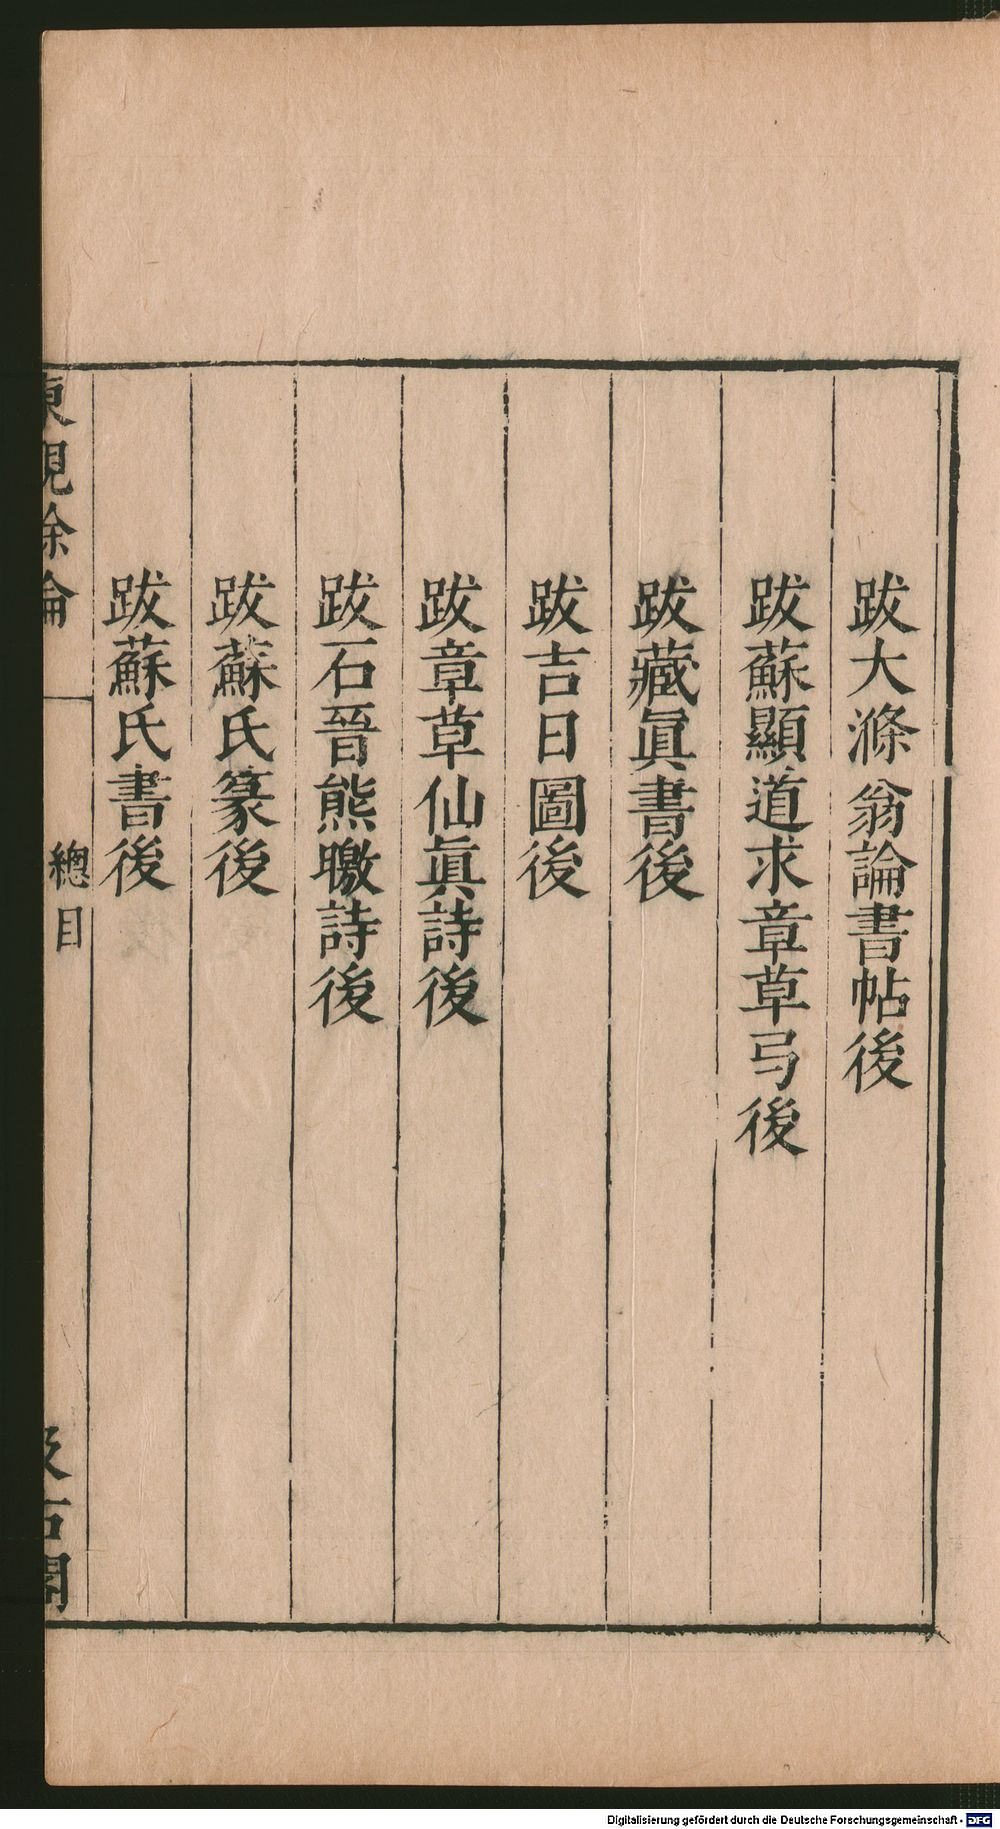 跋大滌翁論書帖後
跋蘇顯道求章草弓後
跋藏眞書後
跋吉日圖後
跋章草仙眞詩後
跋石晉熊曒詩後
跋蘇氏篆後
跋蘇氏書後
東觀餘論
總目
汲古閣
Digitalisierung gefördert durch die Deutsche Forschungsgemeinschaft - DFG